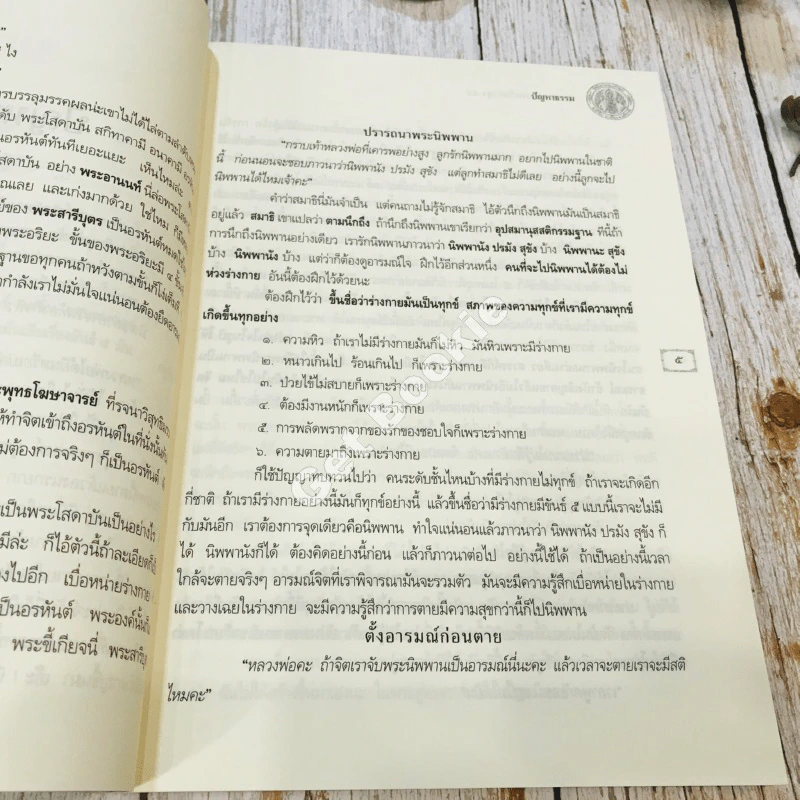 ง ไง
รบรรลุมรรคผลน่ะเขาไม่ได้ไล่ตามลำดับ
ดับ พระโสดาบัน สกิทาคามี อนาคามี
อรหันต์ทันทีเยอะแยะ เห็นไหมล่ะ
โสดาบัน อย่าง พระอานนท์ นี่ล่อพระโสดา
ณเลย และเก่งมากด้วย ใช่ไหม ก็มี
ย์ของ พระสารีบุตร เป็นอรหันต์หมด
พระอริยะ ขั้นของพระอริยะมี ๔ ขั้น
ฐานขอทุกคนถ้าหวังตามขั้นก็โง่เต็มที
ากำลังเราไม่มั่นใจแน่นอนต้องยึดอารม
ะพุทธโฆษาจารย์ ที่รจนาวิสุทธิมรรค
ให้ทำจิตเข้าถึงอรหันต์ในที่นั่งนั้น
ม่ต้องการจริงๆ ก็เป็นอรหันต์
เป็นพระโสดาบันเป็นอย่างไร
มีล่ะ ก็ไอ้ตัวนี้ถ้าละเอียด
งไปอีก เบื่อหน่ายร่างกาย
เป็นอรหันต์ พระองค์นั้นก็
พระขี้เกียจนี่ พระสารีบุ
ปัญหาธรรม
ปรารถนาพระนิพพาน
“กราบเท้าหลวงพ่อที่เคารพอย่างสูง ลูกรักนิพพานมาก อยากไปนิพพานในชาติ
นี้ ก่อนนอนจะชอบภาวนาว่านิพพานัง ปรมัง สุขัง แต่ลูกทำสมาธิไม่ดีเลย อย่างนี้ลูกจะไป
นิพพานได้ไหมเจ้าคะ”
คำว่าสมาธินี่มันจำเป็น แต่คนถามไม่รู้จักสมาธิ ไอ้ตัวนึกถึงนิพพานมันเป็นสมาธิ
อยู่แล้ว สมาธิ เขาแปลว่า ตามนึกถึง ถ้านึกถึงนิพพานเขาเรียกว่า อุปสมานุสสติกรรมฐาน ทีนี้ถ้า
การนึกถึงนิพพานอย่างเดียว เรารักนิพพานภาวนาว่า นิพพานัง ปรมัง สุขัง บ้าง นิพพานะ สุขัง
บ้าง นิพพานัง บ้าง แต่ว่าก็ต้องดูอารมณ์ใจ ฝึกไว้อีกส่วนหนึ่ง คนที่จะไปนิพพานได้ต้องไม่
ห่วงร่างกาย อันนี้ต้องฝึกไว้ด้วยนะ
ต้องฝึกไว้ว่า ขึ้นชื่อว่าร่างกายมันเป็นทุกข์ สภาพของความทุกข์ที่เรามีความทุกข์
เกิดขึ้นทุกอย่าง
๑. ความหิว ถ้าเราไม่มีร่างกายมันก็ไม่หิว มันหิวเพราะมีร่างกาย
๒. หนาวเกินไป ร้อนเกินไป ก็เพราะร่างกาย
๓. ป่วยไข้ไม่สบายก็เพราะร่างกาย
๔. ต้องมีงานหนักก็เพราะร่างกาย
๕. การพลัดพรากจากของรักของชอบใจก็เพราะร่างกาย
๖. ความตายมาถึงเพราะร่างกาย
ก็ใช้ปัญญาทบทวนไปว่า คนระดับชั้นไหนบ้างที่มีร่างกายไม่ทุกข์ ถ้าเราจะเกิดอีก
กี่ชาติ ถ้าเรามีร่างกายอย่างนี้มันก็ทุกข์อย่างนี้ แล้วขึ้นชื่อว่ามีขันธ์ ๕ แบบนี้เราจะไม่มี
กับมันอีก เราต้องการจุดเดียวคือนิพพาน ทำใจแน่นอนแล้วภาวนาว่า นิพพานัง ปรมัง สุขัง ก็
ได้ นิพพานังก็ได้ ต้องคิดอย่างนี้ก่อน แล้วก็ภาวนาต่อไป อย่างนี้ใช้ได้ ถ้าเป็นอย่างนี้เวลา
ใกล้จะตายจริงๆ อารมณ์จิตที่เราพิจารณามันจะรวมตัว มันจะมีความรู้สึกเบื่อหน่ายในร่างกาย
และวางเฉยในร่างกาย จะมีความรู้สึกว่าการตายมีความสุขกว่านี้ก็ไปนิพพาน
ตั้งอารมณ์ก่อนตาย
“หลวงพ่อคะ ถ้าจิตเราจับพระนิพพานเป็นอารมณ์นี่นะคะ แล้วเวลาจะตายเราจะมีสติ
ไหมคะ”
๕
Get Bookie